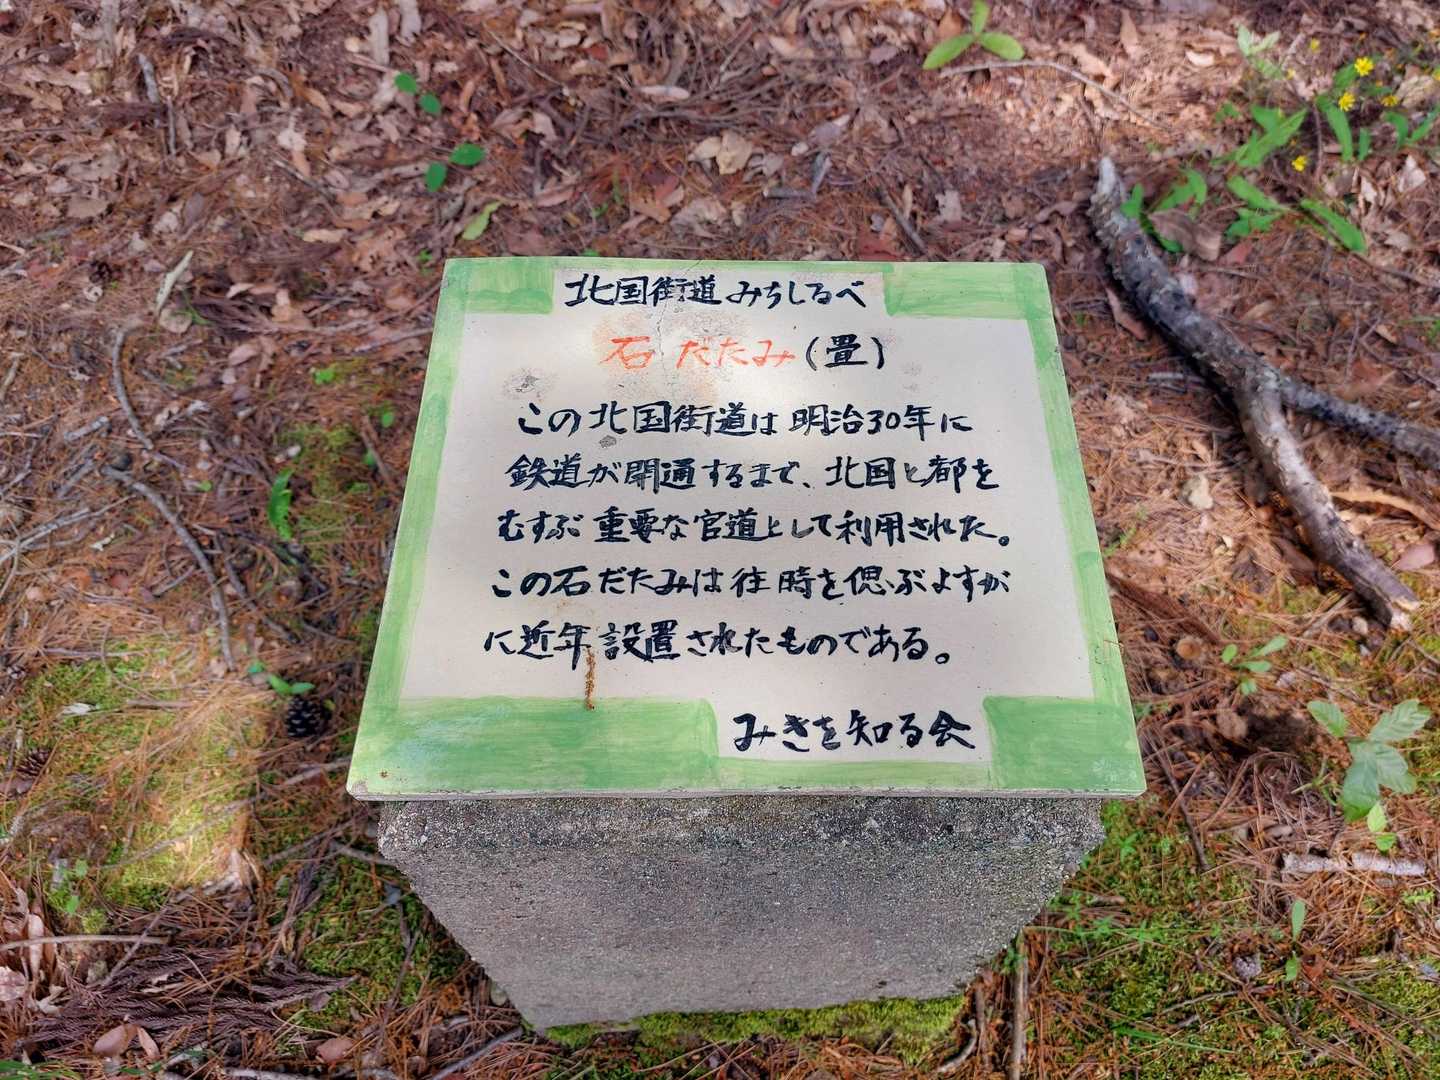 北国街道みちしるべ
石だたみ(畳)
この北国街道は明治30年に
鉄道が開通するまで、北国と都を
むすぶ重要な官道として利用された。
この石だたみは往時を偲ぶよすが
に近年設置されたものである。
みきを知る会